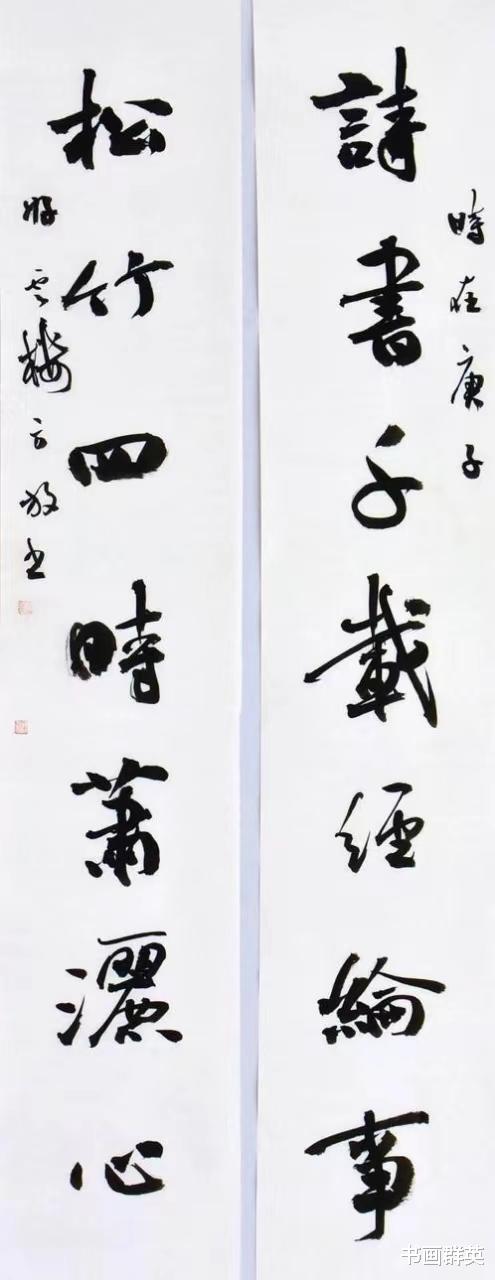 詩書千載經綸事
時在庚子
松竹四時蕭灑心
好云樓方放书
书画群英